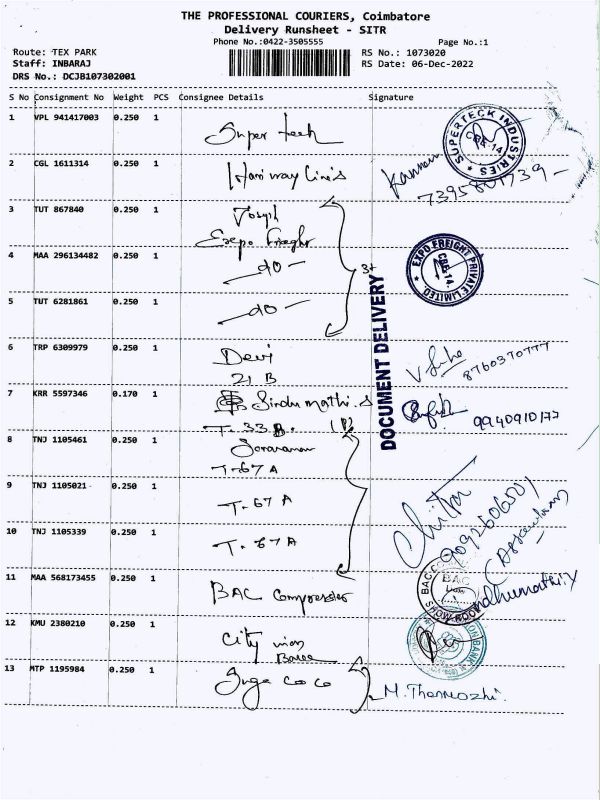 THE PROFESSIONAL COURIERS, Coimbatore
Delivery Runsheet - SITR
Phone No.:0422-3505555
Page No.:1
Route: TEX PARK
RS No.: 1073020
Staff: INBARAJ
RS Date: 06-Dec-2022
DRS No.: DCJB107302001
S No Consignment No Weight PCS Consignee Details Signature
1 VPL 941417003 0.250 1 Super tech
SUPERTECK INDUSTRIES CBE-14
2 CGL 1611314 0.250 1
Kannan
7395801739
3 TUT 867840 0.250 1 Joseph
Expo Freight
4 MAA 296134482 0.250 1 - do -
EXPO FREIGHT PRIVATE LIMITED. CBE-14.
5 TUT 6281861 0.250 1 - do -
DOCUMENT DELIVERY
6 TRP 6309979 0.250 1 Devi
21 B
8760370777
7 KRR 5597346 0.170 1 Sindumathi.S
T. 33 B.
8 TNJ 1105461 0.250 1 Saravanan
T-67 A
9 TNJ 1105021 0.250 1 T. 67 A
Chitra
10 TNJ 1105339 0.250 1 T. 67 A
11 MAA 568173455 0.250 1 BAC Compressor
BAC
SHOW ROOM
12 KMU 2380210 0.250 1 City union
Bank
13 MTP 1195984 0.250 1
M. Thenmozhi.